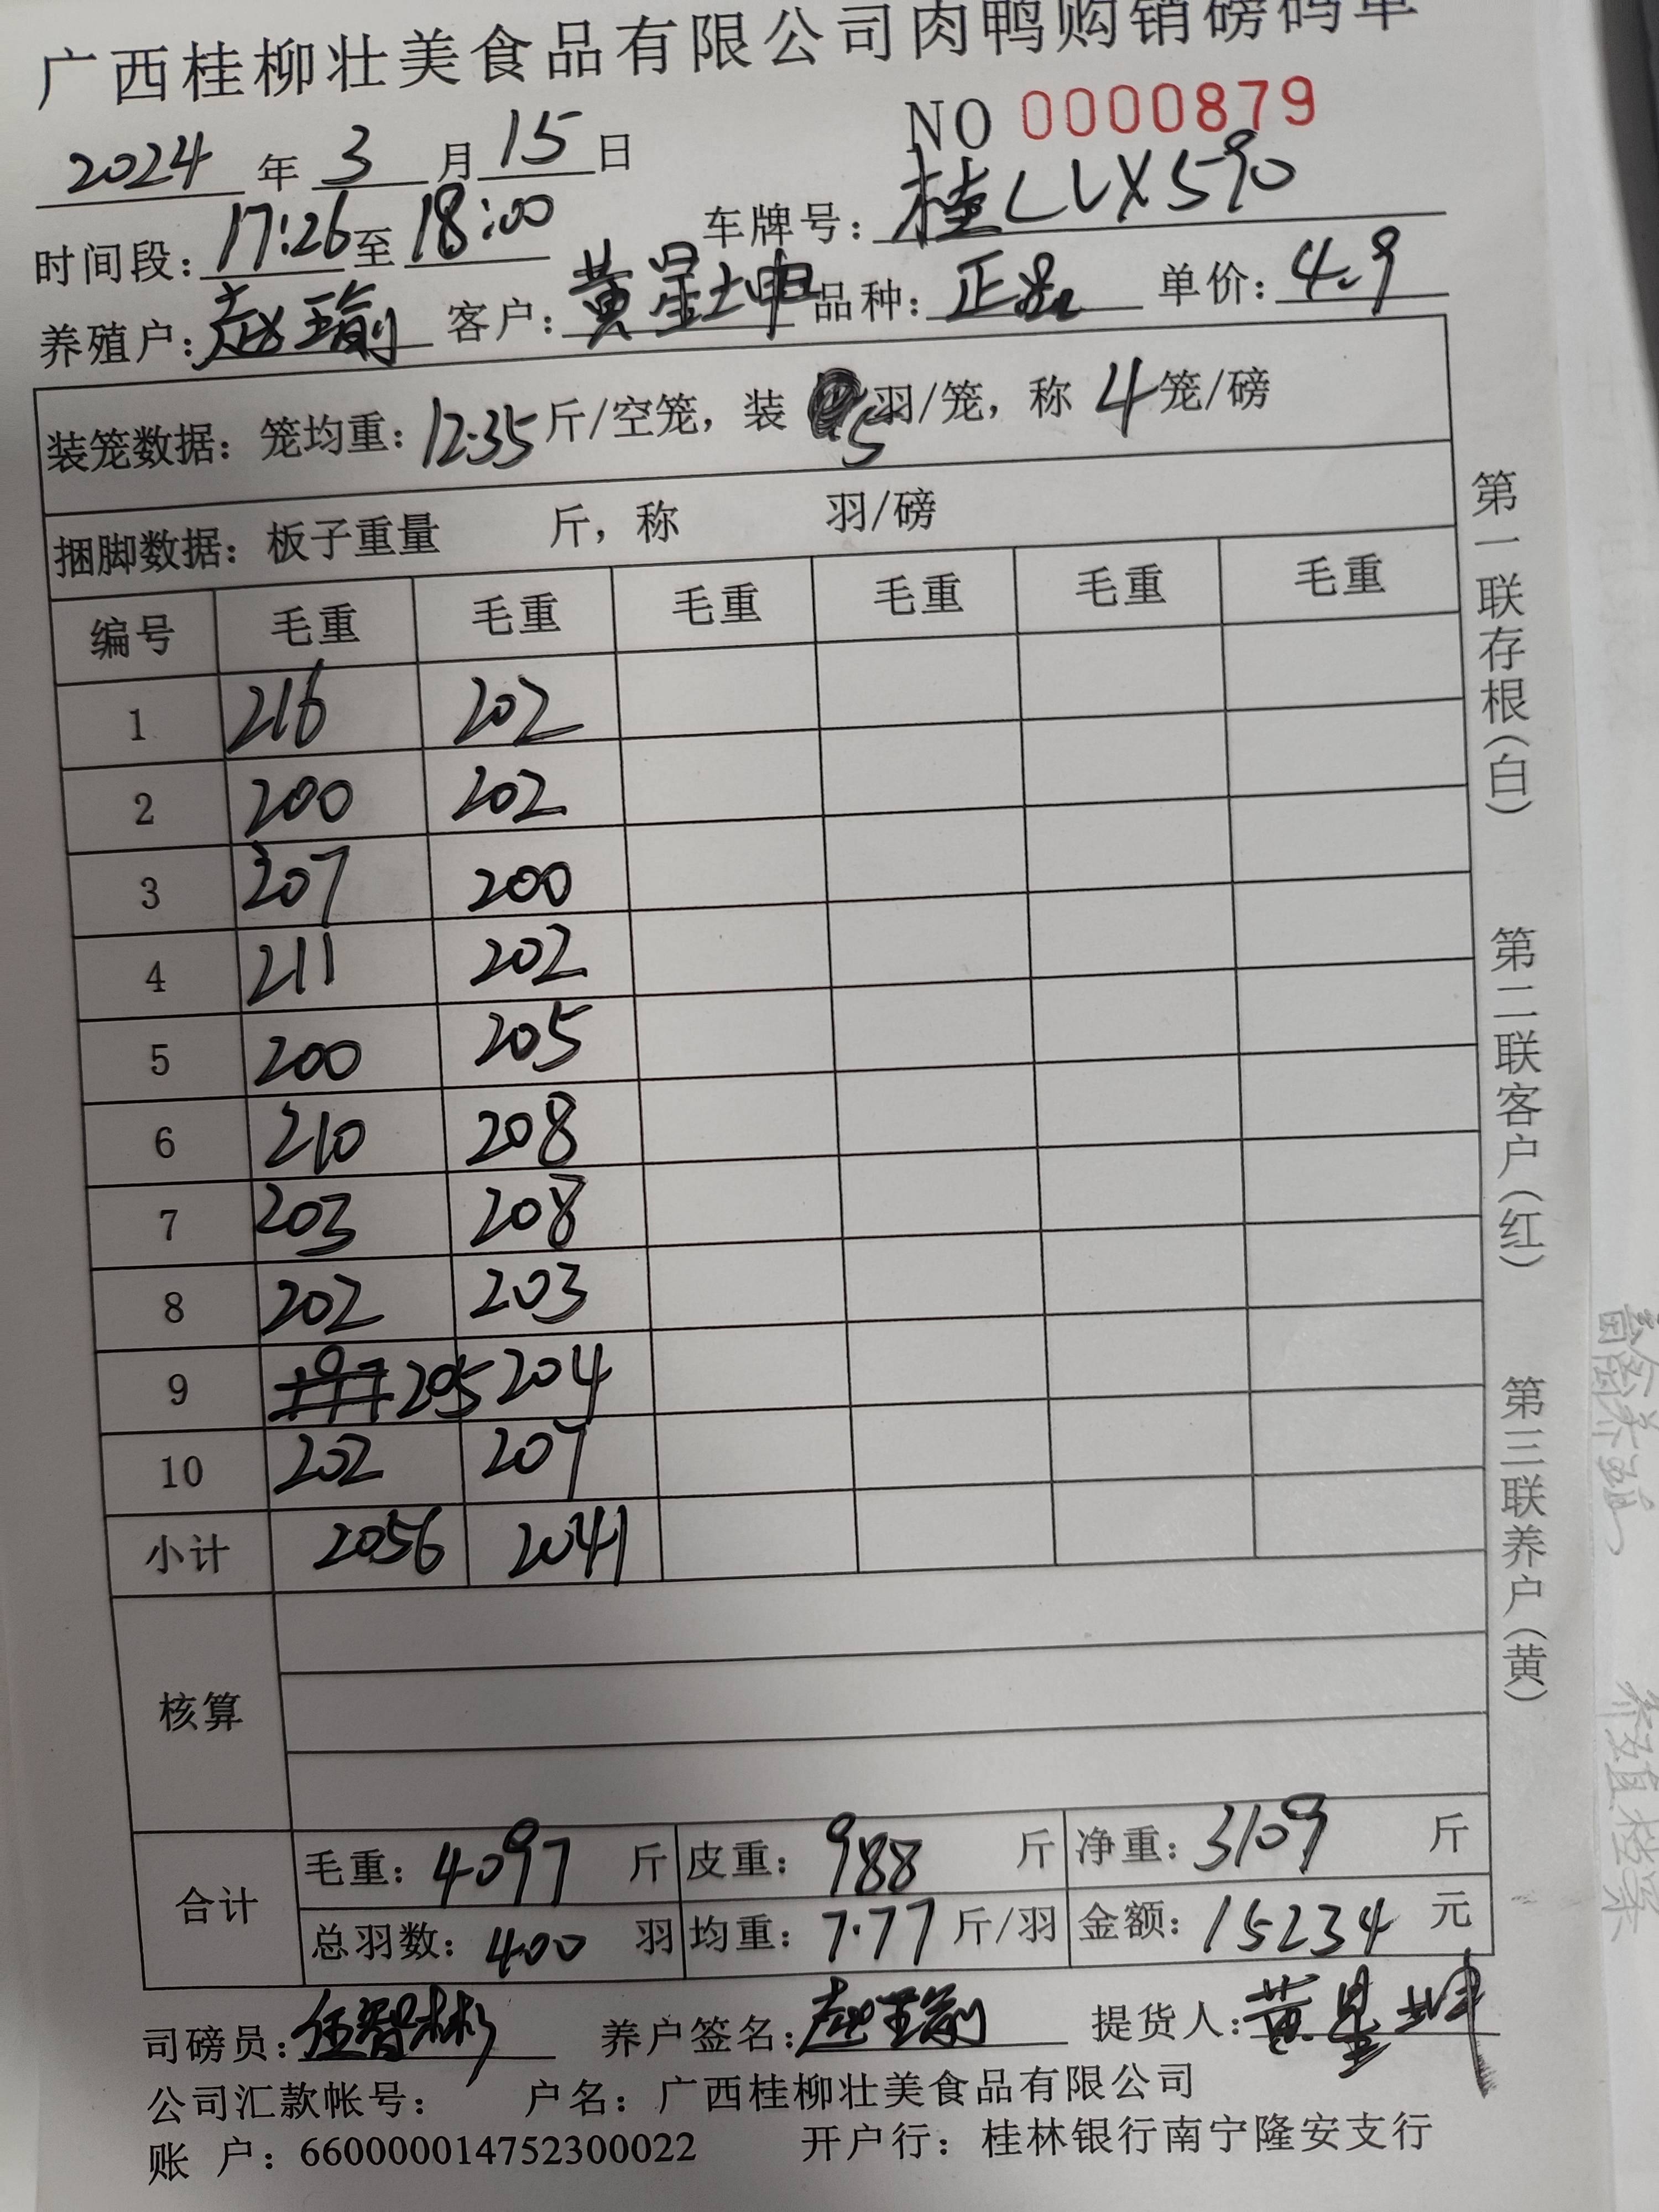 广西桂柳壮美食品有限公司肉鸭购销磅码单
NO 0000879
2024 年 3 月 15 日
时间段: 17:26 至 18:00 车牌号: 桂LVX590
养殖户: 赵瑜 客户: 黄星坤 品种: 正品 单价: 4.9
装笼数据: 笼均重: 12.35 斤/空笼, 装 5 羽/笼, 称 4 笼/磅
捆脚数据: 板子重量 斤, 称 羽/磅
编号 毛重 毛重 毛重 毛重 毛重 毛重
1 216 202
2 200 202
3 207 200
4 211 202
5 200 205
6 210 208
7 203 208
8 202 203
9 205 204
10 202 207
小计 2056 2041
核算
合计 毛重: 4097 斤 皮重: 988 斤 净重: 3109 斤
总羽数: 400 羽 均重: 7.77 斤/羽 金额: 15234 元
司磅员: 任智彬 养户签名: 赵瑜 提货人: 黄星坤
公司汇款帐号: 户名: 广西桂柳壮美食品有限公司
账 户: 660000014752300022 开户行: 桂林银行南宁隆安支行
第一联存根(白)
第二联客户(红)
第三联养户(黄)